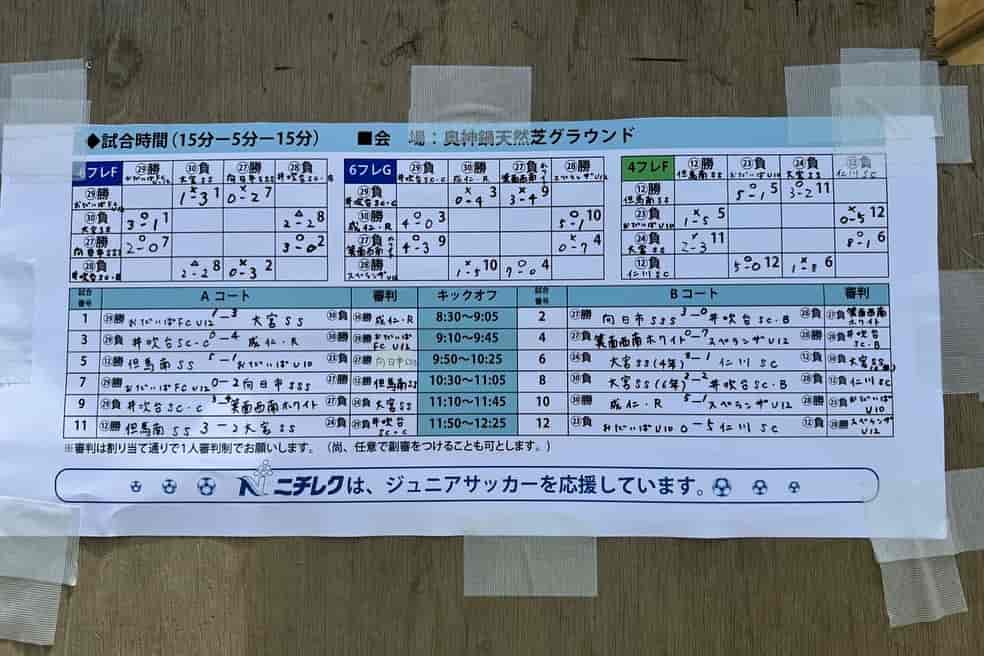 ◆試合時間(15分ー5分ー15分) ■会 場:奥神鍋天然芝グラウンド
フレF ㉙勝 おだいば ㉚負 大宮SS ㉗勝 向日市SSS ㉘負 井吹台SC・B
㉙勝 おだいば × 1-3 1 × 0-2 7
㉚負 大宮SS ○ 3-1 1 △ 2-2 8
㉗勝 向日市SSS ○ 2-0 7 ○ 3-0 2
㉘負 井吹台SC・B △ 2-2 8 × 0-3 2
6フレG ㉙負 井吹台SC・C ㉚勝 成仁・R ㉗負 箕面西南ホワイト ㉘勝 スペランザU12
㉙負 井吹台SC・C × 0-4 3 × 3-4 9
㉚勝 成仁・R ○ 4-0 3 ○ 5-1 10
㉗負 箕面西南ホワイト ○ 4-3 9 × 0-7 4
㉘勝 スペランザU12 × 1-5 10 ○ 7-0 4
4フレF ⑫勝 但馬南SS ㉓負 おだいばU10 ㉔負 大宮SS ⑫負 仁川SC
⑫勝 但馬南SS ○ 5-1 5 ○ 3-2 11
㉓負 おだいばU10 × 1-5 5 × 0-5 12
㉔負 大宮SS × 2-3 11 ○ 8-1 6
⑫負 仁川SC ○ 5-0 12 × 1-8 6
試合番号 Aコート 審判 キックオフ 試合番号 Bコート 審判
1 ㉙勝 おだいばFC U12 1-3 大宮SS ㉚負 ㉚勝 成仁・R 8:30〜9:05 2 ㉗勝 向日市SSS 3-0 井吹台SC・B ㉘負 ㉗負 箕面西南ホワイト
3 ㉙負 井吹台SC・C 0-4 成仁・R ㉚勝 ㉙勝 おだいばFC U12 9:10〜9:45 4 ㉗負 箕面西南ホワイト 0-7 スペランザU12 ㉘勝 ㉘負 井吹台SC・B
5 ⑫勝 但馬南SS 5-1 おだいばU10 ㉓負 ㉗勝 向日市SSS 9:50〜10:25 6 ㉔負 大宮SS(4年) 8-1 仁川SC ⑫負 ㉚負 大宮SS
7 ㉙勝 おだいばFC U12 0-2 向日市SSS ㉗勝 ⑫勝 但馬南SS 10:30〜11:05 8 ㉚負 大宮SS(6年) 2-2 井吹台SC・B ㉘負 ⑫負 仁川SC
9 ㉙負 井吹台SC・C 3-4 箕面西南ホワイト ㉗負 ㉔負 大宮SS 11:10〜11:45 10 ㉚勝 成仁・R 5-1 スペランザU12 ㉘勝 ㉓負 おだいばU10
11 ⑫勝 但馬南SS 3-2 大宮SS ㉔負 ㉙負 井吹台SC・C 11:50〜12:25 12 ㉓負 おだいばU10 0-5 仁川SC ⑫負 ㉘勝 スペランザU12
※審判は割り当て通りで1人審判制でお願いします。(尚、任意で副審をつけることも可とします。)
ニチレクは、ジュニアサッカーを応援しています。